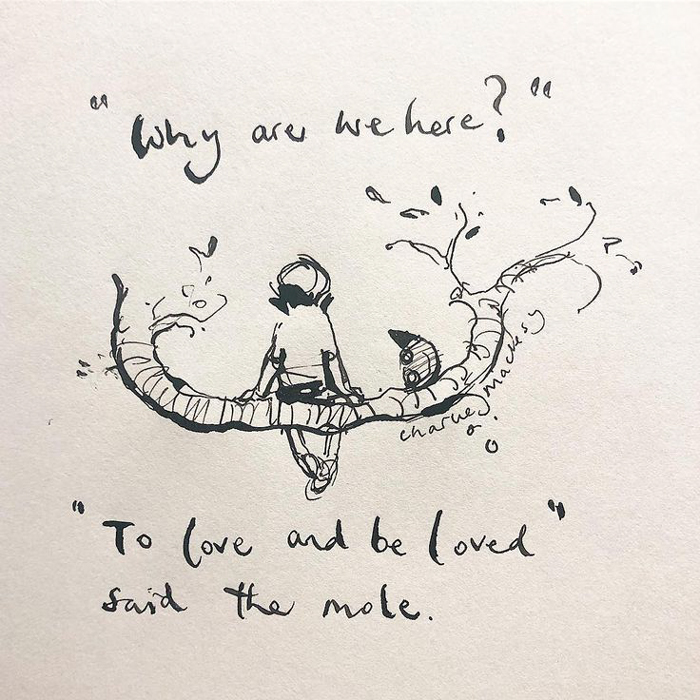 "Why are we here?"
charlie mackesy
"To love and be loved"
said the mole.